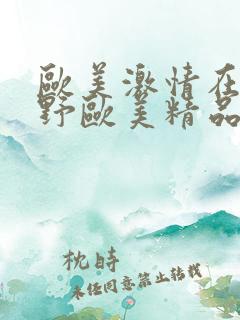 歐美激情在
野歐美精品
枕時
未經同意禁止轉載